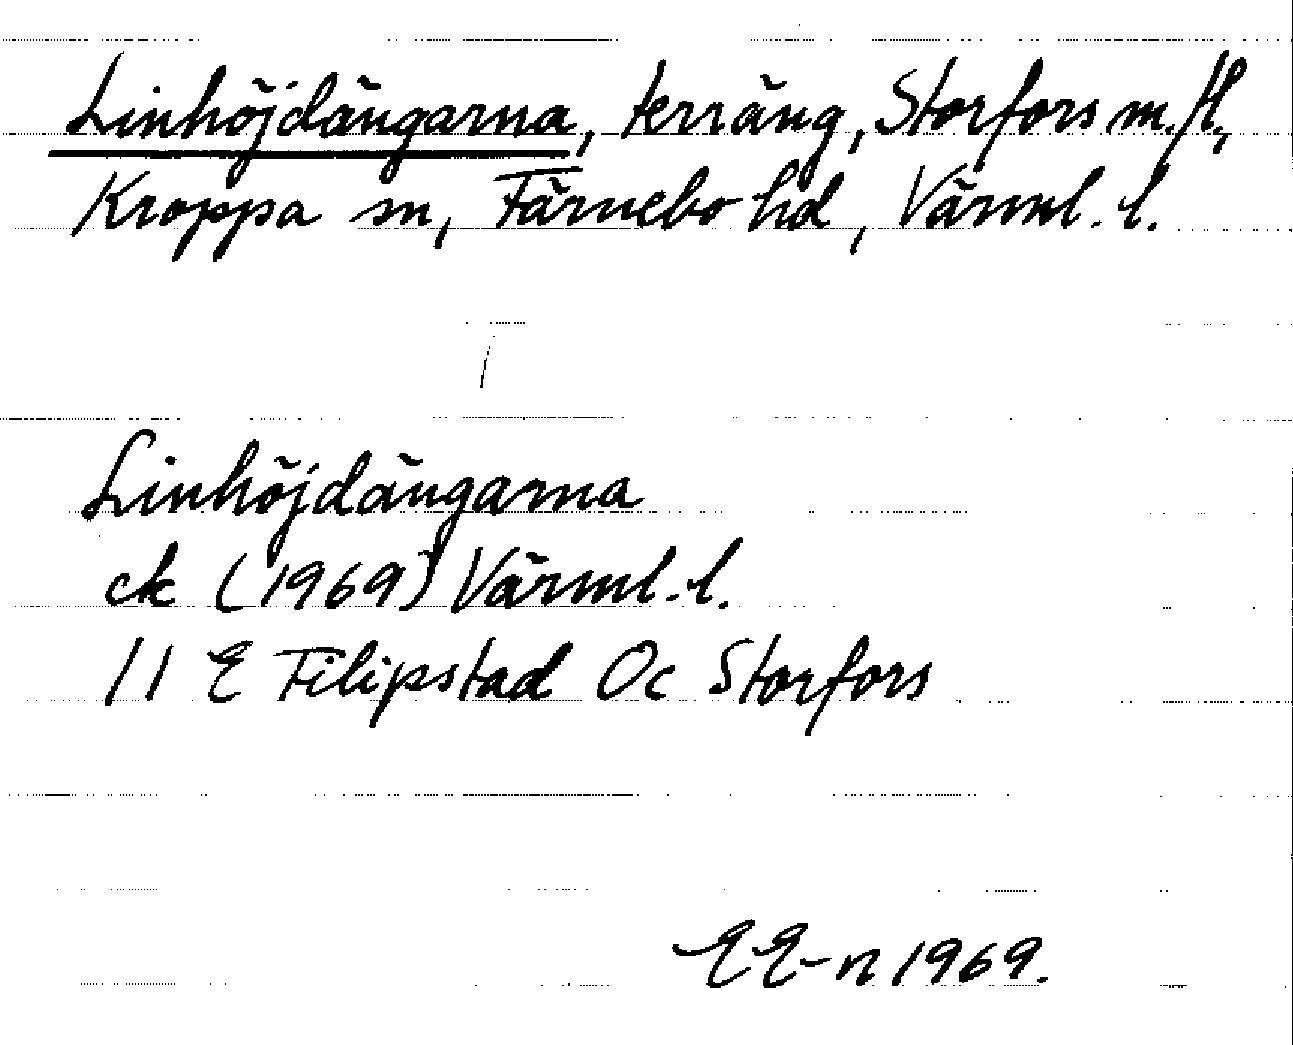 Linhöjdängarna, terräng, Storfors m. fl.,
Kroppa sn, Färnebo hd, Värml. l.
Linhöjdängarna
ek (1969) Värml. l.
11 E Filipstad Oc Storfors
EE-n 1969.